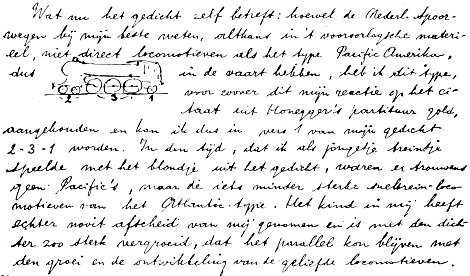 Wat nu het gedicht zelf betreft: hoewel de Nederl. Spoor-
wegen bij mijn beste weten, althans in 't vooroorlogsche materi-
eel, niet direct locomotieven als het type Pacific Amerika,
dus
2 3 1
in de vaart hebben, heb ik dit type,
voor zoover dit mijn reactie op het ci-
taat uit Honegger's partituur gold,
aangehouden en kan ik dus in vers 1 van mijn gedicht
2-3-1 worden. In den tijd, dat ik als jongetje treintje
speelde met het blondje uit het gedicht, waren er trouwens
geen Pacific's, maar de iets minder sterke sneltrein-loco-
motieven van het Atlantic-type. Het kind in mij heeft
echter nooit afscheid van mij genomen en is met den dich-
ter zoo sterk vergroeid, dat het parallel kon blijven met
den groei en de ontwikkeling van de geliefde locomotieven.